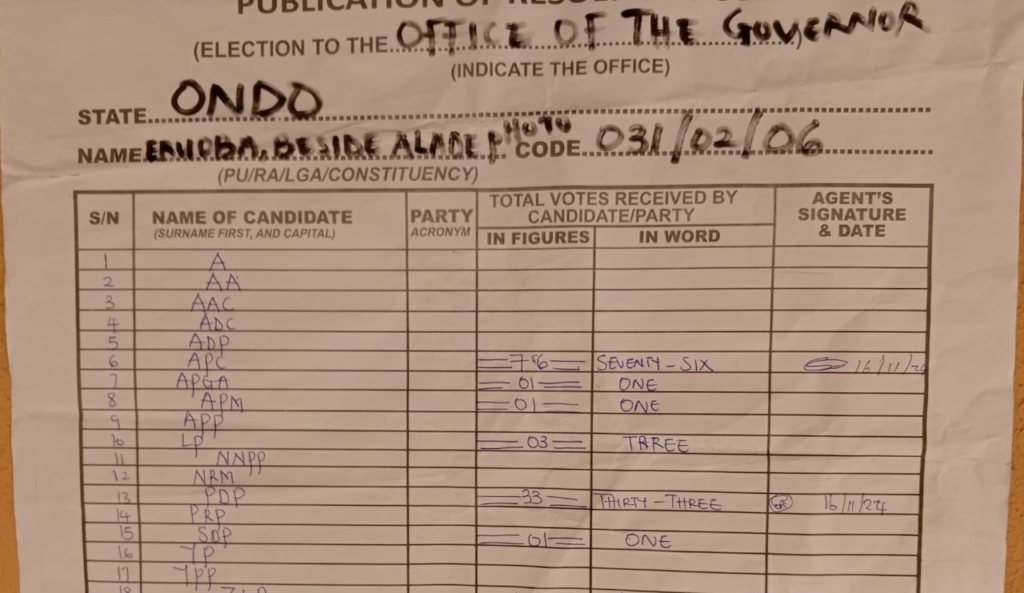 PUBLICATION OF RESULT
(ELECTION TO THE OFFICE OF THE GOVERNOR
(INDICATE THE OFFICE)
STATE ONDO
NAME BESIDE ALADE CODE 031/02/06
(PU/RA/LGA/CONSTITUENCY)
S/N NAME OF CANDIDATE (SURNAME FIRST, AND CAPITAL) PARTY ACRONYM TOTAL VOTES RECEIVED BY CANDIDATE/PARTY IN FIGURES IN WORD AGENT'S SIGNATURE & DATE
1 A
2 AA
3 AAC
4 ADC
5 ADP
6 APC 76 SEVENTY-SIX 16/11/24
7 APGA 01 ONE
8 APM 01 ONE
9 APP
10 LP 03 THREE
11 NNPP
12 NRM
13 PDP 33 THIRTY-THREE 16/11/24
14 PRP
15 SDP 01 ONE
16 YP
17 YPP
18